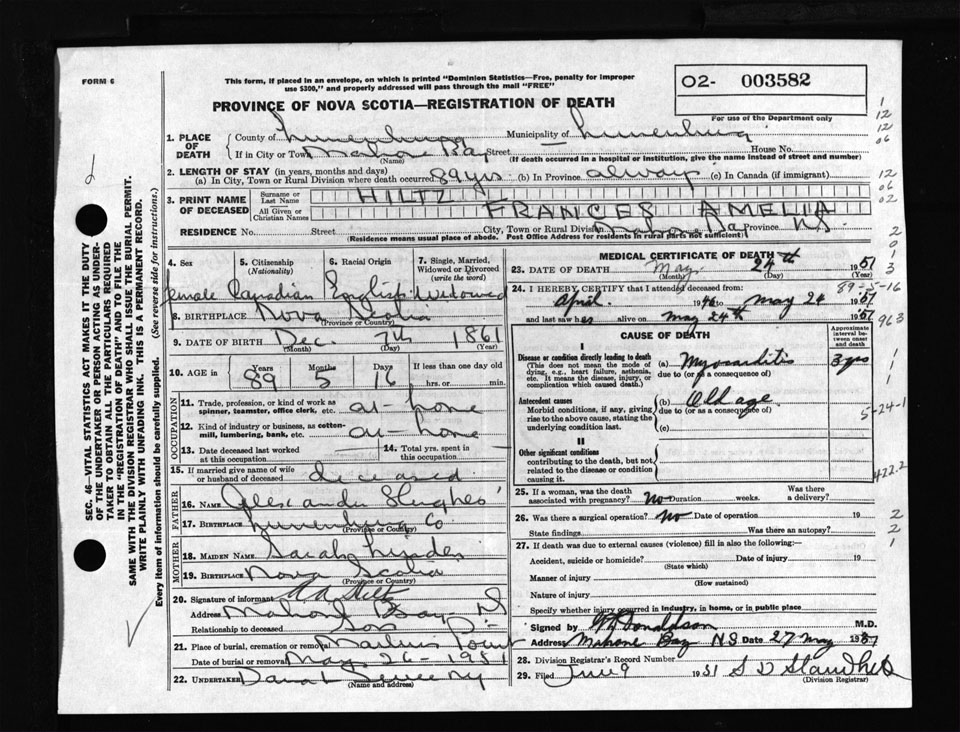 FORM 6
This form, if placed in an envelope, on which is printed "Dominion Statistics—Free, penalty for improper
use $300," and properly addressed will pass through the mail "FREE"
O2- 003582
For use of the Department only
PROVINCE OF NOVA SCOTIA—REGISTRATION OF DEATH
1. PLACE OF DEATH
County of Lunenburg Municipality of Lunenburg
If in City or Town Mahone Bay Street House No.
(Name) (If death occurred in a hospital or institution, give the name instead of street and number)
2. LENGTH OF STAY (in years, months and days)
(a) In City, Town or Rural Division where death occurred 89 yrs (b) In Province always (c) In Canada (if immigrant)
3. PRINT NAME OF DECEASED
Surname or Last Name HILTZ
All Given or Christian Names FRANCES AMELIA
RESIDENCE No. Street City, Town or Rural Division Mahone Bay Province N.S.
(Residence means usual place of abode. Post Office Address for residents in rural parts not sufficient)
4. Sex 5. Citizenship (Nationality) 6. Racial Origin 7. Single, Married, Widowed or Divorced (write the word)
female Canadian English Widowed
8. BIRTHPLACE Nova Scotia
(Province or Country)
9. DATE OF BIRTH Dec. 7th 1861
(Month) (Day)
10. AGE in Years Months Days If less than one day old
89 5 16 hrs. or min.
OCCUPATION
11. Trade, profession, or kind of work as spinner, teamster, office clerk, etc. at-home
12. Kind of industry or business, as cotten-mill, lumbering, bank, etc. at-home
13. Date deceased last worked at this occupation 14. Total yrs. spent in this occupation
15. If married give name of wife or husband of deceased deceased
FATHER
16. NAME Alexander Hughes
17. BIRTHPLACE Lunenburg Co
(Province or Country)
MOTHER
18. MAIDEN NAME Sarah
19. BIRTHPLACE Nova Scotia
(Province or Country)
20. Signature of informant Hiltz
Address Mahone Bay N.S.
Relationship to deceased Son
21. Place of burial, cremation or removal Point
Date of burial or removal May 26 - 1951
22. UNDERTAKER
(Name and address)
MEDICAL CERTIFICATE OF DEATH
23. DATE OF DEATH May 24th 1951
(Month) (Day) (Year)
24. I HEREBY CERTIFY that I attended deceased from:
April 1946 to May 24 1951
and last saw her alive on May 24th 1951
CAUSE OF DEATH
Approximate interval between onset and death
I
Disease or condition directly leading to death
(This does not mean the mode of dying, e.g., heart failure, asthenia, etc. It means the disease, injury, or complication which caused death.)
(a) Myocarditis 3 yrs
due to (or as a consequence of)
Antecedent causes
Morbid conditions, if any, giving rise to the above cause, stating the underlying condition last.
(b) Old age
due to (or as a consequence of)
(c)
II
Other significant conditions
contributing to the death, but not related to the disease or condition causing it.
25. If a woman, was the death associated with pregnancy? No Duration weeks. Was there a delivery?
26. Was there a surgical operation? No Date of operation 19
State findings Was there an autopsy?
27. If death was due to external causes (violence) fill in also the following:—
Accident, suicide or homicide? Date of injury 19
(State which)
Manner of injury
(How sustained)
Nature of injury
Specify whether injury occurred in industry, in home, or in public place
Signed by Donaldson M.D.
Address Mahone Bay NS Date 27 May 1951
28. Division Registrar's Record Number
29. Filed June 9 1951
(Division Registrar)
SEC. 46 VITAL STATISTICS ACT MAKES IT THE DUTY
OF THE UNDERTAKER OR PERSON ACTING AS UNDER-
TAKER TO OBTAIN ALL THE PARTICULARS REQUIRED
IN THE "REGISTRATION OF DEATH" AND TO FILE THE
SAME WITH THE DIVISION REGISTRAR WHO SHALL ISSUE THE BURIAL PERMIT.
WRITE PLAINLY WITH UNFADING INK. THIS IS A PERMANENT RECORD.
Every item of information should be carefully supplied. (See reverse side for instructions.)
1
12
12
06
12
06
02
2
0
1
3
89-5-16
963
1
1
1
5-24-1
422.2
2
2
1